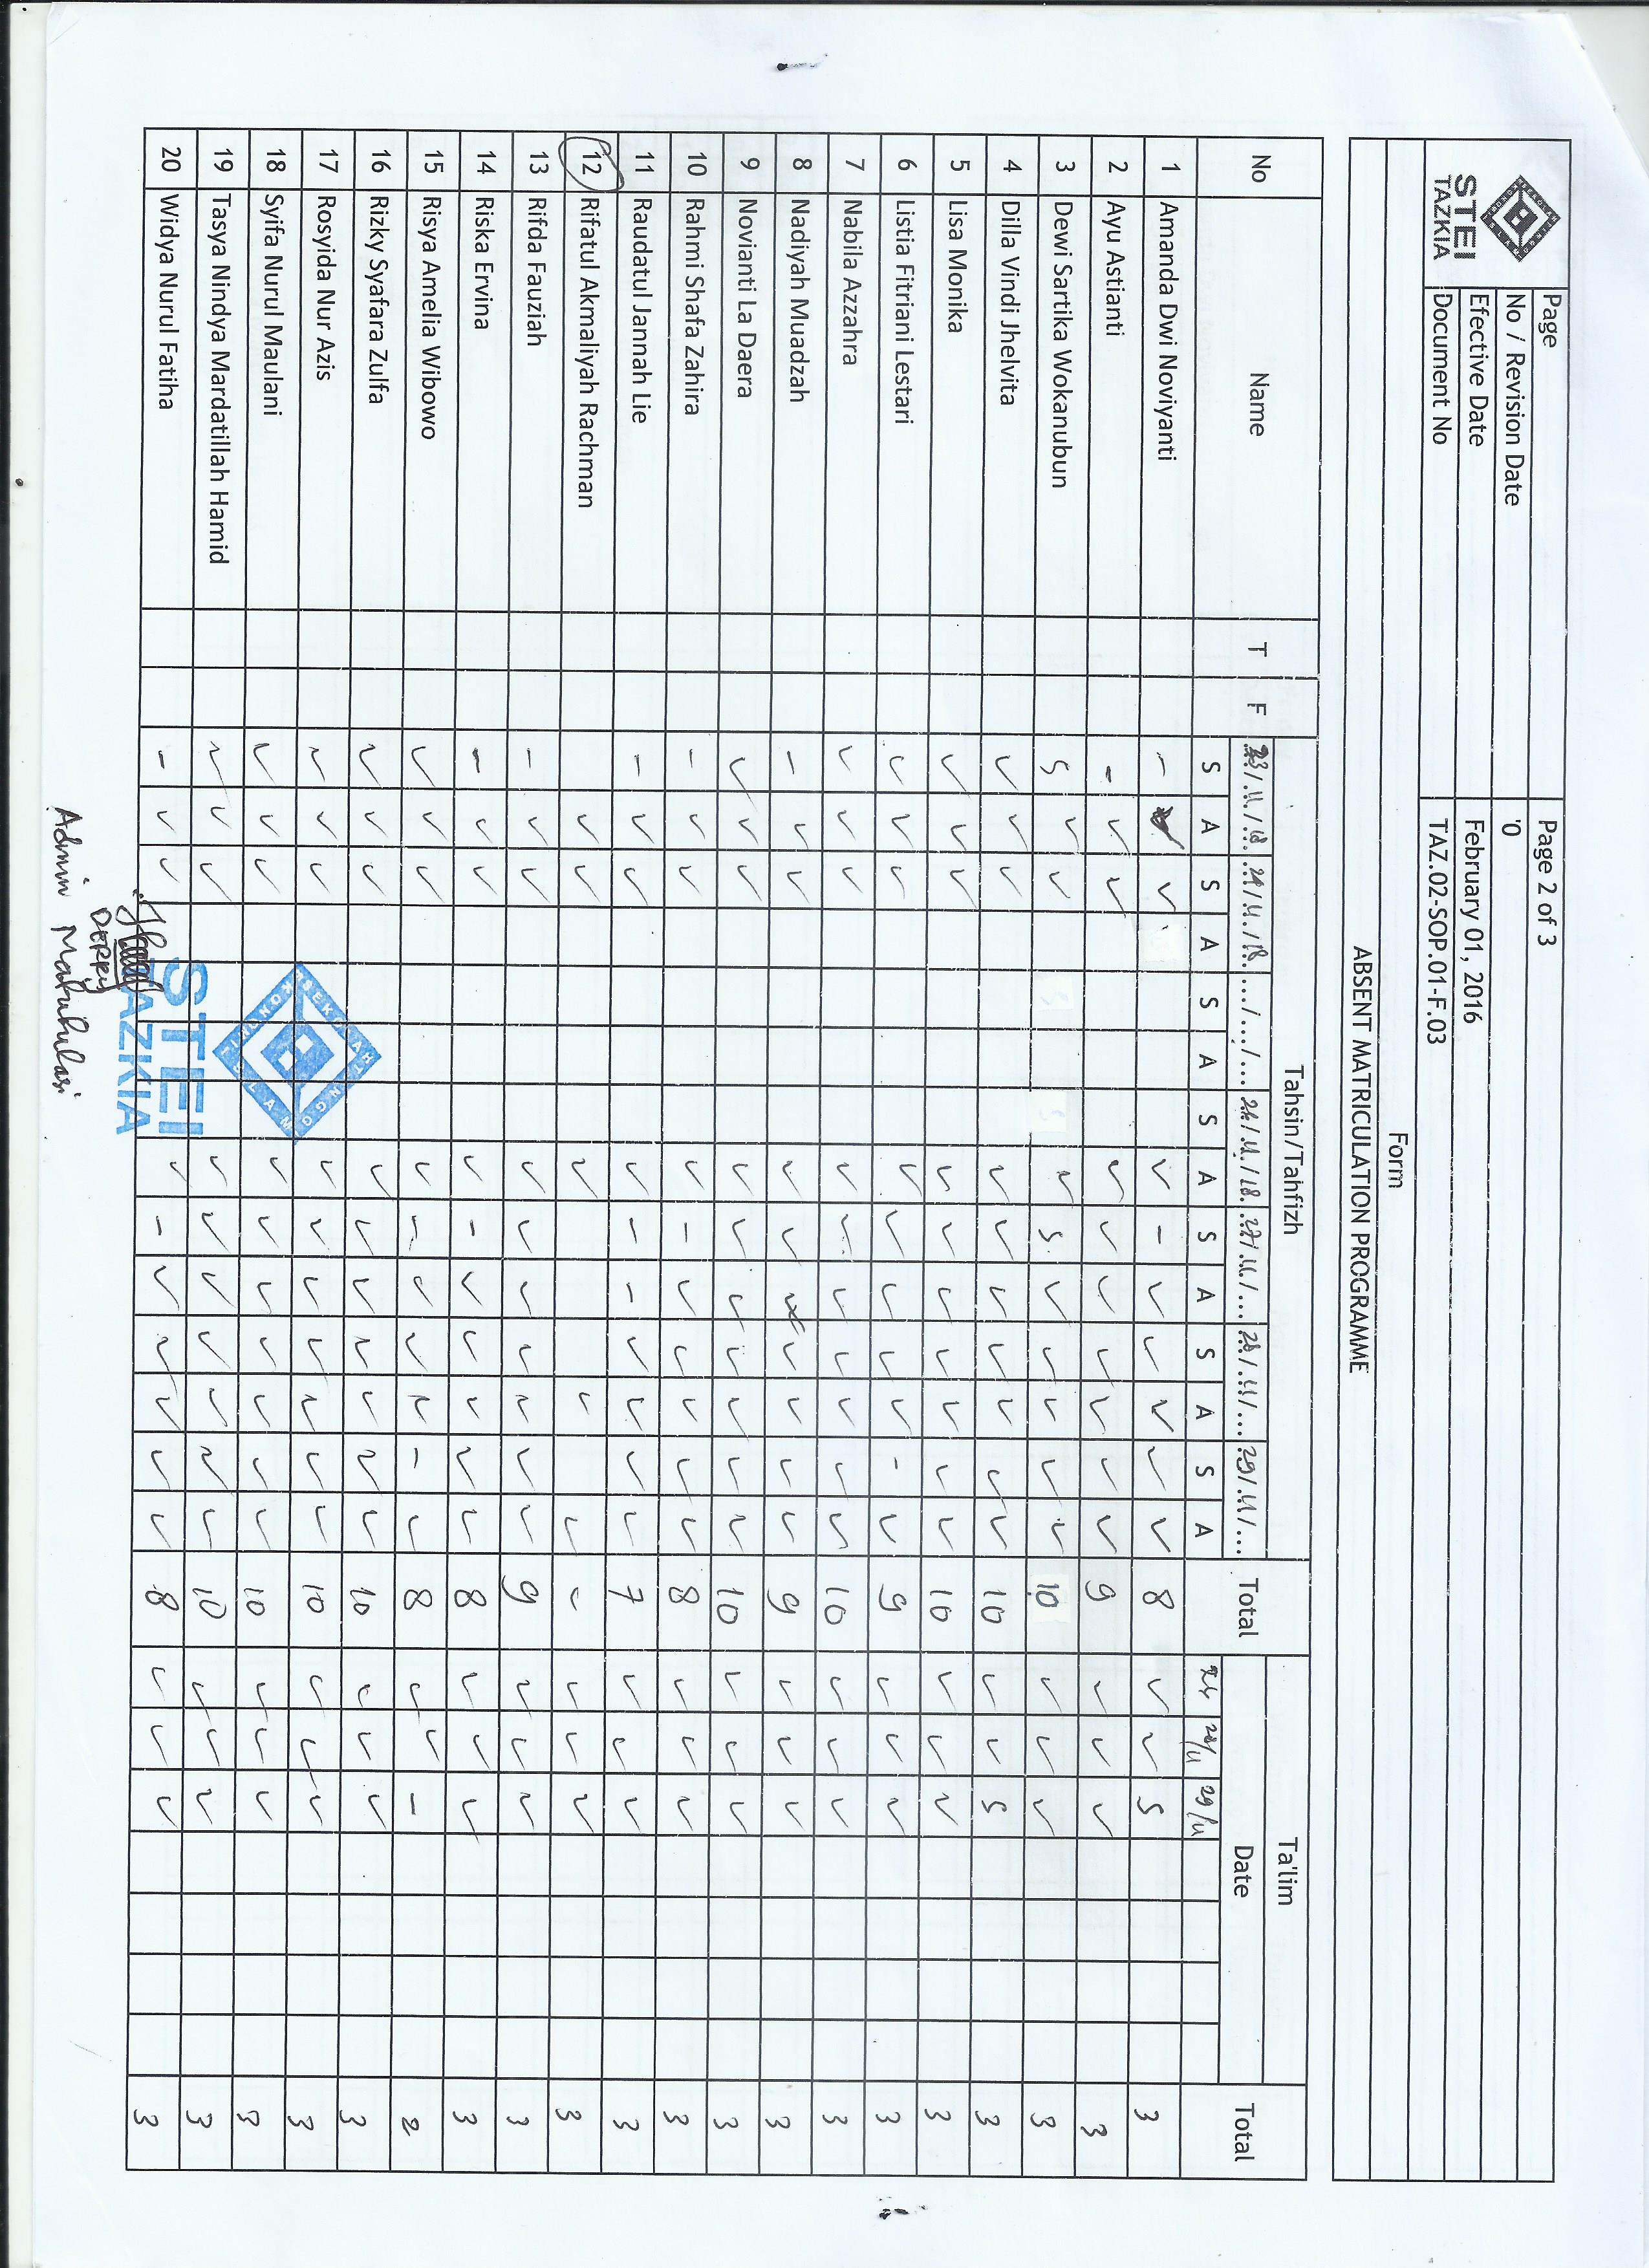 STEI
TAZKIA
Page Page 2 of 3
No / Revision Date '0
Efective Date February 01, 2016
Document No TAZ.02-SOP.01-F.03
Form
ABSENT MATRICULATION PROGRAMME
No Name T F Tahsin/Tahfizh Total Ta'lim Total
23/11/18 24/11/18 .../.../... 26/11/18 27/11/... 28/11/... 29/11/... Date
S A S A S A S A S A S A S A 29/11
1 Amanda Dwi Noviyanti – ✓ ✓ ✓ – ✓ ✓ ✓ ✓ ✓ 8 ✓ ✓ S 3
2 Ayu Astianti – ✓ ✓ ✓ ✓ ✓ ✓ ✓ ✓ ✓ 9 ✓ ✓ ✓ 3
3 Dewi Sartika Wokanubun S ✓ ✓ S S ✓ S ✓ ✓ ✓ ✓ ✓ 10 ✓ ✓ ✓ 3
4 Dilla Vindi Jhelvita ✓ ✓ ✓ ✓ ✓ ✓ ✓ ✓ ✓ ✓ 10 ✓ ✓ S 3
5 Lisa Monika ✓ ✓ ✓ ✓ ✓ ✓ ✓ ✓ ✓ ✓ 10 ✓ ✓ ✓ 3
6 Listia Fitriani Lestari ✓ ✓ ✓ ✓ ✓ ✓ ✓ ✓ – ✓ 9 ✓ ✓ ✓ 3
7 Nabila Azzahra ✓ ✓ ✓ ✓ ✓ ✓ ✓ ✓ ✓ ✓ 10 ✓ ✓ ✓ 3
8 Nadiyah Muadzah – ✓ ✓ ✓ ✓ ✓ ✓ ✓ ✓ ✓ 9 ✓ ✓ ✓ 3
9 Novianti La Daera ✓ ✓ ✓ ✓ ✓ ✓ ✓ ✓ ✓ ✓ 10 ✓ ✓ ✓ 3
10 Rahmi Shafa Zahira – ✓ ✓ ✓ – ✓ ✓ ✓ ✓ ✓ 8 ✓ ✓ ✓ 3
11 Raudatul Jannah Lie – ✓ ✓ ✓ – – ✓ ✓ ✓ ✓ 7 ✓ ✓ ✓ 3
12 Rifatul Akmaliyah Rachman ✓ ✓ ✓ ✓ ✓ – ✓ ✓ ✓ 3
13 Rifda Fauziah – ✓ ✓ ✓ ✓ ✓ ✓ ✓ ✓ ✓ 9 ✓ ✓ ✓ 3
14 Riska Ervina – ✓ ✓ ✓ – ✓ ✓ ✓ ✓ ✓ 8 ✓ ✓ ✓ 3
15 Risya Amelia Wibowo ✓ ✓ ✓ ✓ – ✓ ✓ ✓ – ✓ 8 ✓ ✓ – 2
16 Rizky Syafara Zulfa ✓ ✓ ✓ ✓ ✓ ✓ ✓ ✓ ✓ ✓ 10 ✓ ✓ ✓ 3
17 Rosyida Nur Azis ✓ ✓ ✓ ✓ ✓ ✓ ✓ ✓ ✓ ✓ 10 ✓ ✓ ✓ 3
18 Syifa Nurul Maulani ✓ ✓ ✓ ✓ ✓ ✓ ✓ ✓ ✓ ✓ 10 ✓ ✓ ✓ 3
19 Tasya Nindya Mardatillah Hamid ✓ ✓ ✓ ✓ ✓ ✓ ✓ ✓ ✓ ✓ 10 ✓ ✓ ✓ 3
20 Widya Nurul Fatiha – ✓ ✓ ✓ – ✓ ✓ ✓ ✓ ✓ 8 ✓ ✓ ✓ 3
STEI
TAZKIA
DERRY
Admin Matrikulasi